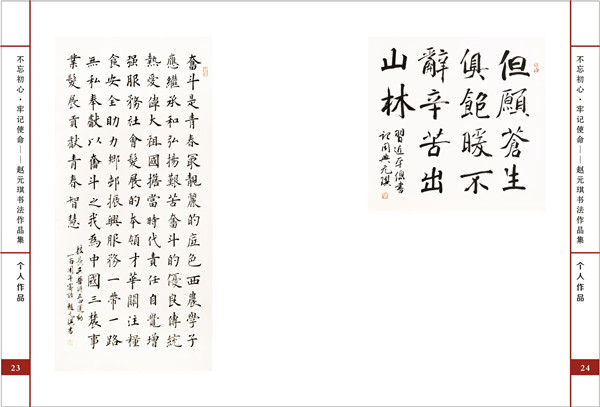 不忘初心·牢记使命——赵元琪书法作品集
个人作品
23
奮斗是青春最靚麗的底色西農學子
應繼承和弘揚艱苦奮斗的優良傳統
熱愛偉大祖國擔當時代責任自覺增
强服務社會發展的本領才華關注糧
食安全助力鄉邨振興服務一帶一路
無私奉獻以奮斗之我爲中國三農事
業發展貢獻青春智慧
五四運動
一百周年寄語 趙元琪書
但願蒼生
俱飽暖不
辭辛苦出
山林
習近平 書
元琪
不忘初心·牢记使命——赵元琪书法作品集
个人作品
24